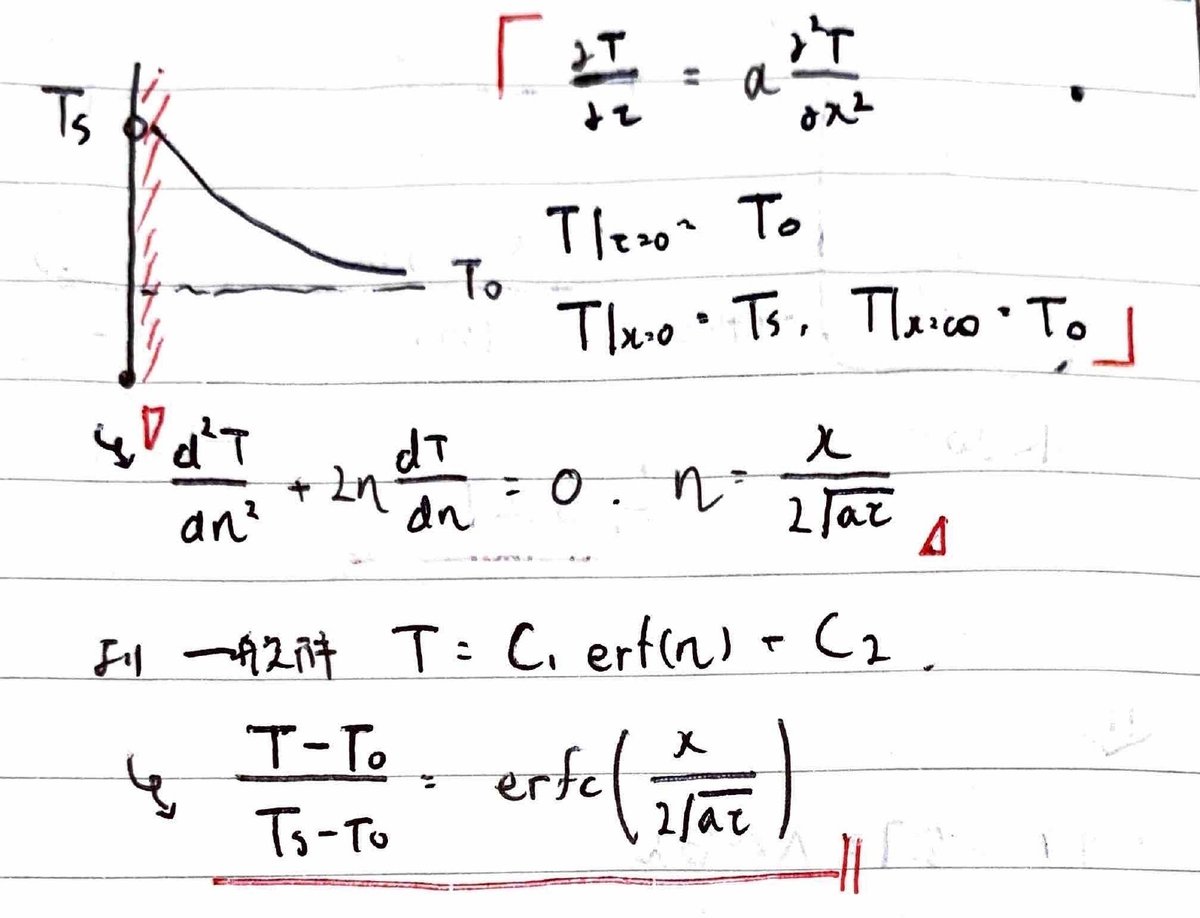 ∂T/∂τ = a ∂²T/∂x²
Ts
T|τ=0 = T0
T0
T|x=0 = Ts, T|x=∞ = T0
d²T/dη² + 2η dT/dη = 0. η = x/2√aτ
一般解 T = C₁ erf(η) + C₂.
T-T0/Ts-T0 = erfc(x/2√aτ)